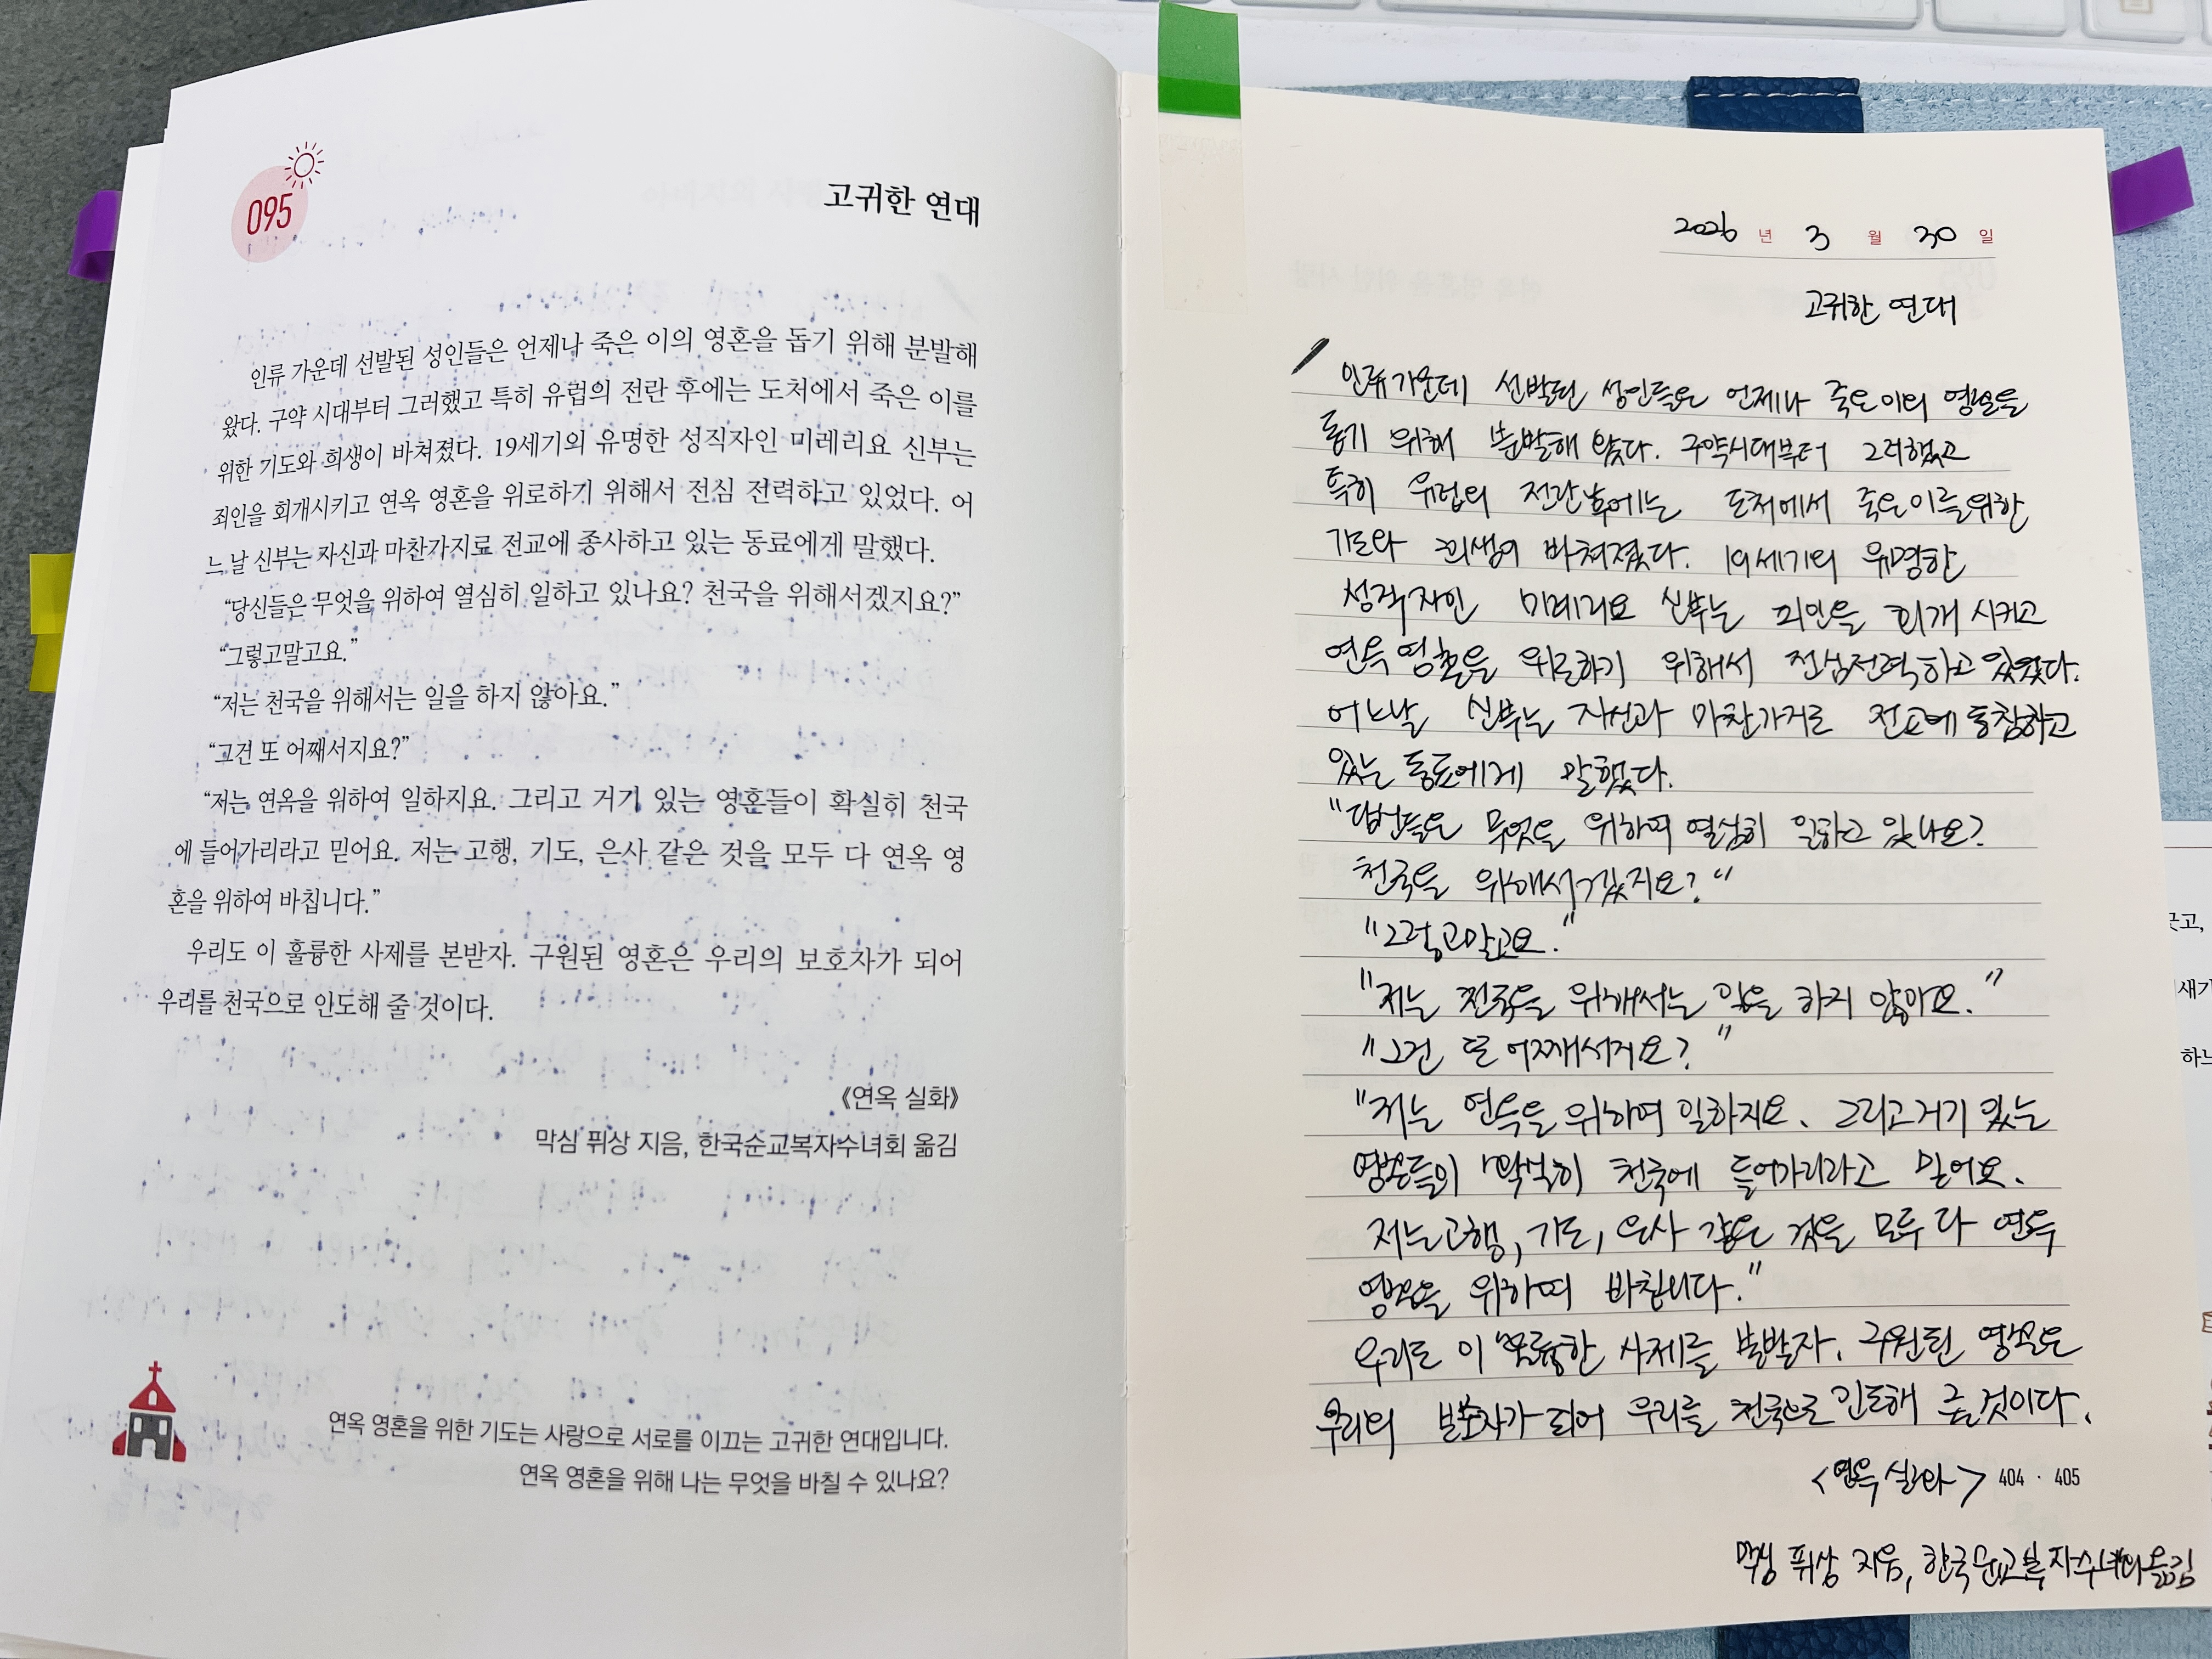 095
고귀한 연대
인류 가운데 선발된 성인들은 언제나 죽은 이의 영혼을 돕기 위해 분발해
왔다. 구약 시대부터 그러했고 특히 유럽의 전란 후에는 도처에서 죽은 이를
위한 기도와 희생이 바쳐졌다. 19세기의 유명한 성직자인 미레리요 신부는
죄인을 회개시키고 연옥 영혼을 위로하기 위해서 전심 전력하고 있었다. 어
느 날 신부는 자신과 마찬가지로 전교에 종사하고 있는 동료에게 말했다.
“당신들은 무엇을 위하여 열심히 일하고 있나요? 천국을 위해서겠지요?”
“그렇고말고요.”
“저는 천국을 위해서는 일을 하지 않아요.”
“그건 또 어째서지요?”
“저는 연옥을 위하여 일하지요. 그리고 거기 있는 영혼들이 확실히 천국
에 들어가리라고 믿어요. 저는 고행, 기도, 은사 같은 것을 모두 다 연옥 영
혼을 위하여 바칩니다.”
우리도 이 훌륭한 사제를 본받자. 구원된 영혼은 우리의 보호자가 되어
우리를 천국으로 인도해 줄 것이다.
《연옥 실화》
막심 퓌상 지음, 한국순교복자수녀회 옮김
연옥 영혼을 위한 기도는 사랑으로 서로를 이끄는 고귀한 연대입니다.
연옥 영혼을 위해 나는 무엇을 바칠 수 있나요?
2026 년 3 월 30 일
고귀한 연대
인류가운데 선발된 성인들은 언제나 죽은이의 영혼을
돕기 위해 분발해 왔다. 구약시대부터 그러했고
특히 유럽의 전란후에는 도처에서 죽은이를위한
기도와 희생이 바쳐졌다. 19세기의 유명한
성직자인 미레리요 신부는 죄인을 회개시키고
연옥영혼을 위로하기 위해서 전심전력하고 있었다.
어느날 신부는 자신과 마찬가지로 전교에 종참하고
있는 동료에게 말했다.
"당신들은 무엇을 위하여 열심히 일하고 있나요?
천국을 위해서겠지요?"
"그렇고말고요."
"저는 천국을 위해서는 일을 하지 않아요."
"그건 또 어째서지요?"
"저는 연옥을 위하여 일하지요. 그리고거기 있는
영혼들이 확실히 천국에 들어가리라고 믿어요.
저는고행, 기도, 은사 같은 것을 모두 다 연옥
영혼을 위하여 바칩니다."
우리도 이 훌륭한 사제를 본받자. 구원된 영혼은
우리의 보호자가 되어 우리를 천국으로 인도해 줄 것이다.
<연옥 실화> 404 · 405
막심 퓌상 지음, 한국순교복자수녀회옮김
새기
하느